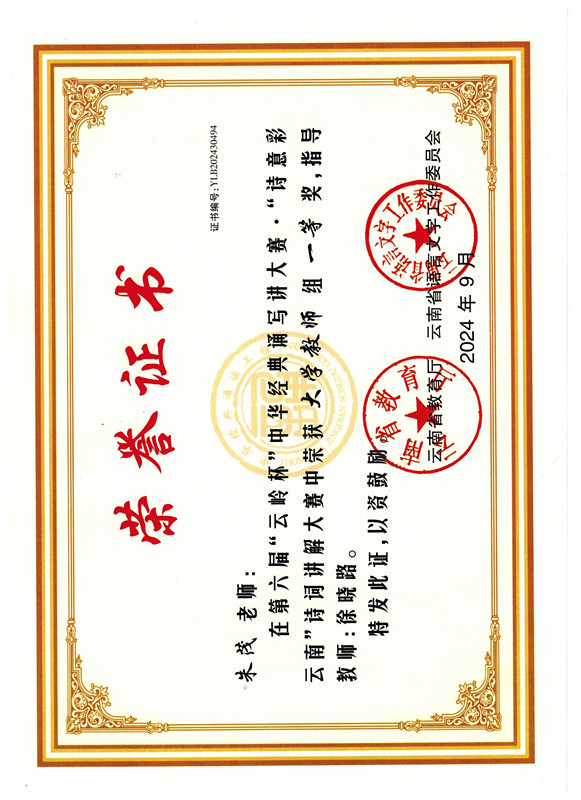 证书编号:YLB202430494
荣誉证书
朱茂 老师:
在第六届“云岭杯”中华经典诵写讲大赛·“诗意彩
云南”诗词讲解大赛中荣获 大学教师 组 一等 奖,指导
教师:徐晓路。
特发此证,以资鼓励。
云南省教育厅 云南省语言文字工作委员会
2024年9月
云南省教育厅
云南省语言文字工作委员会